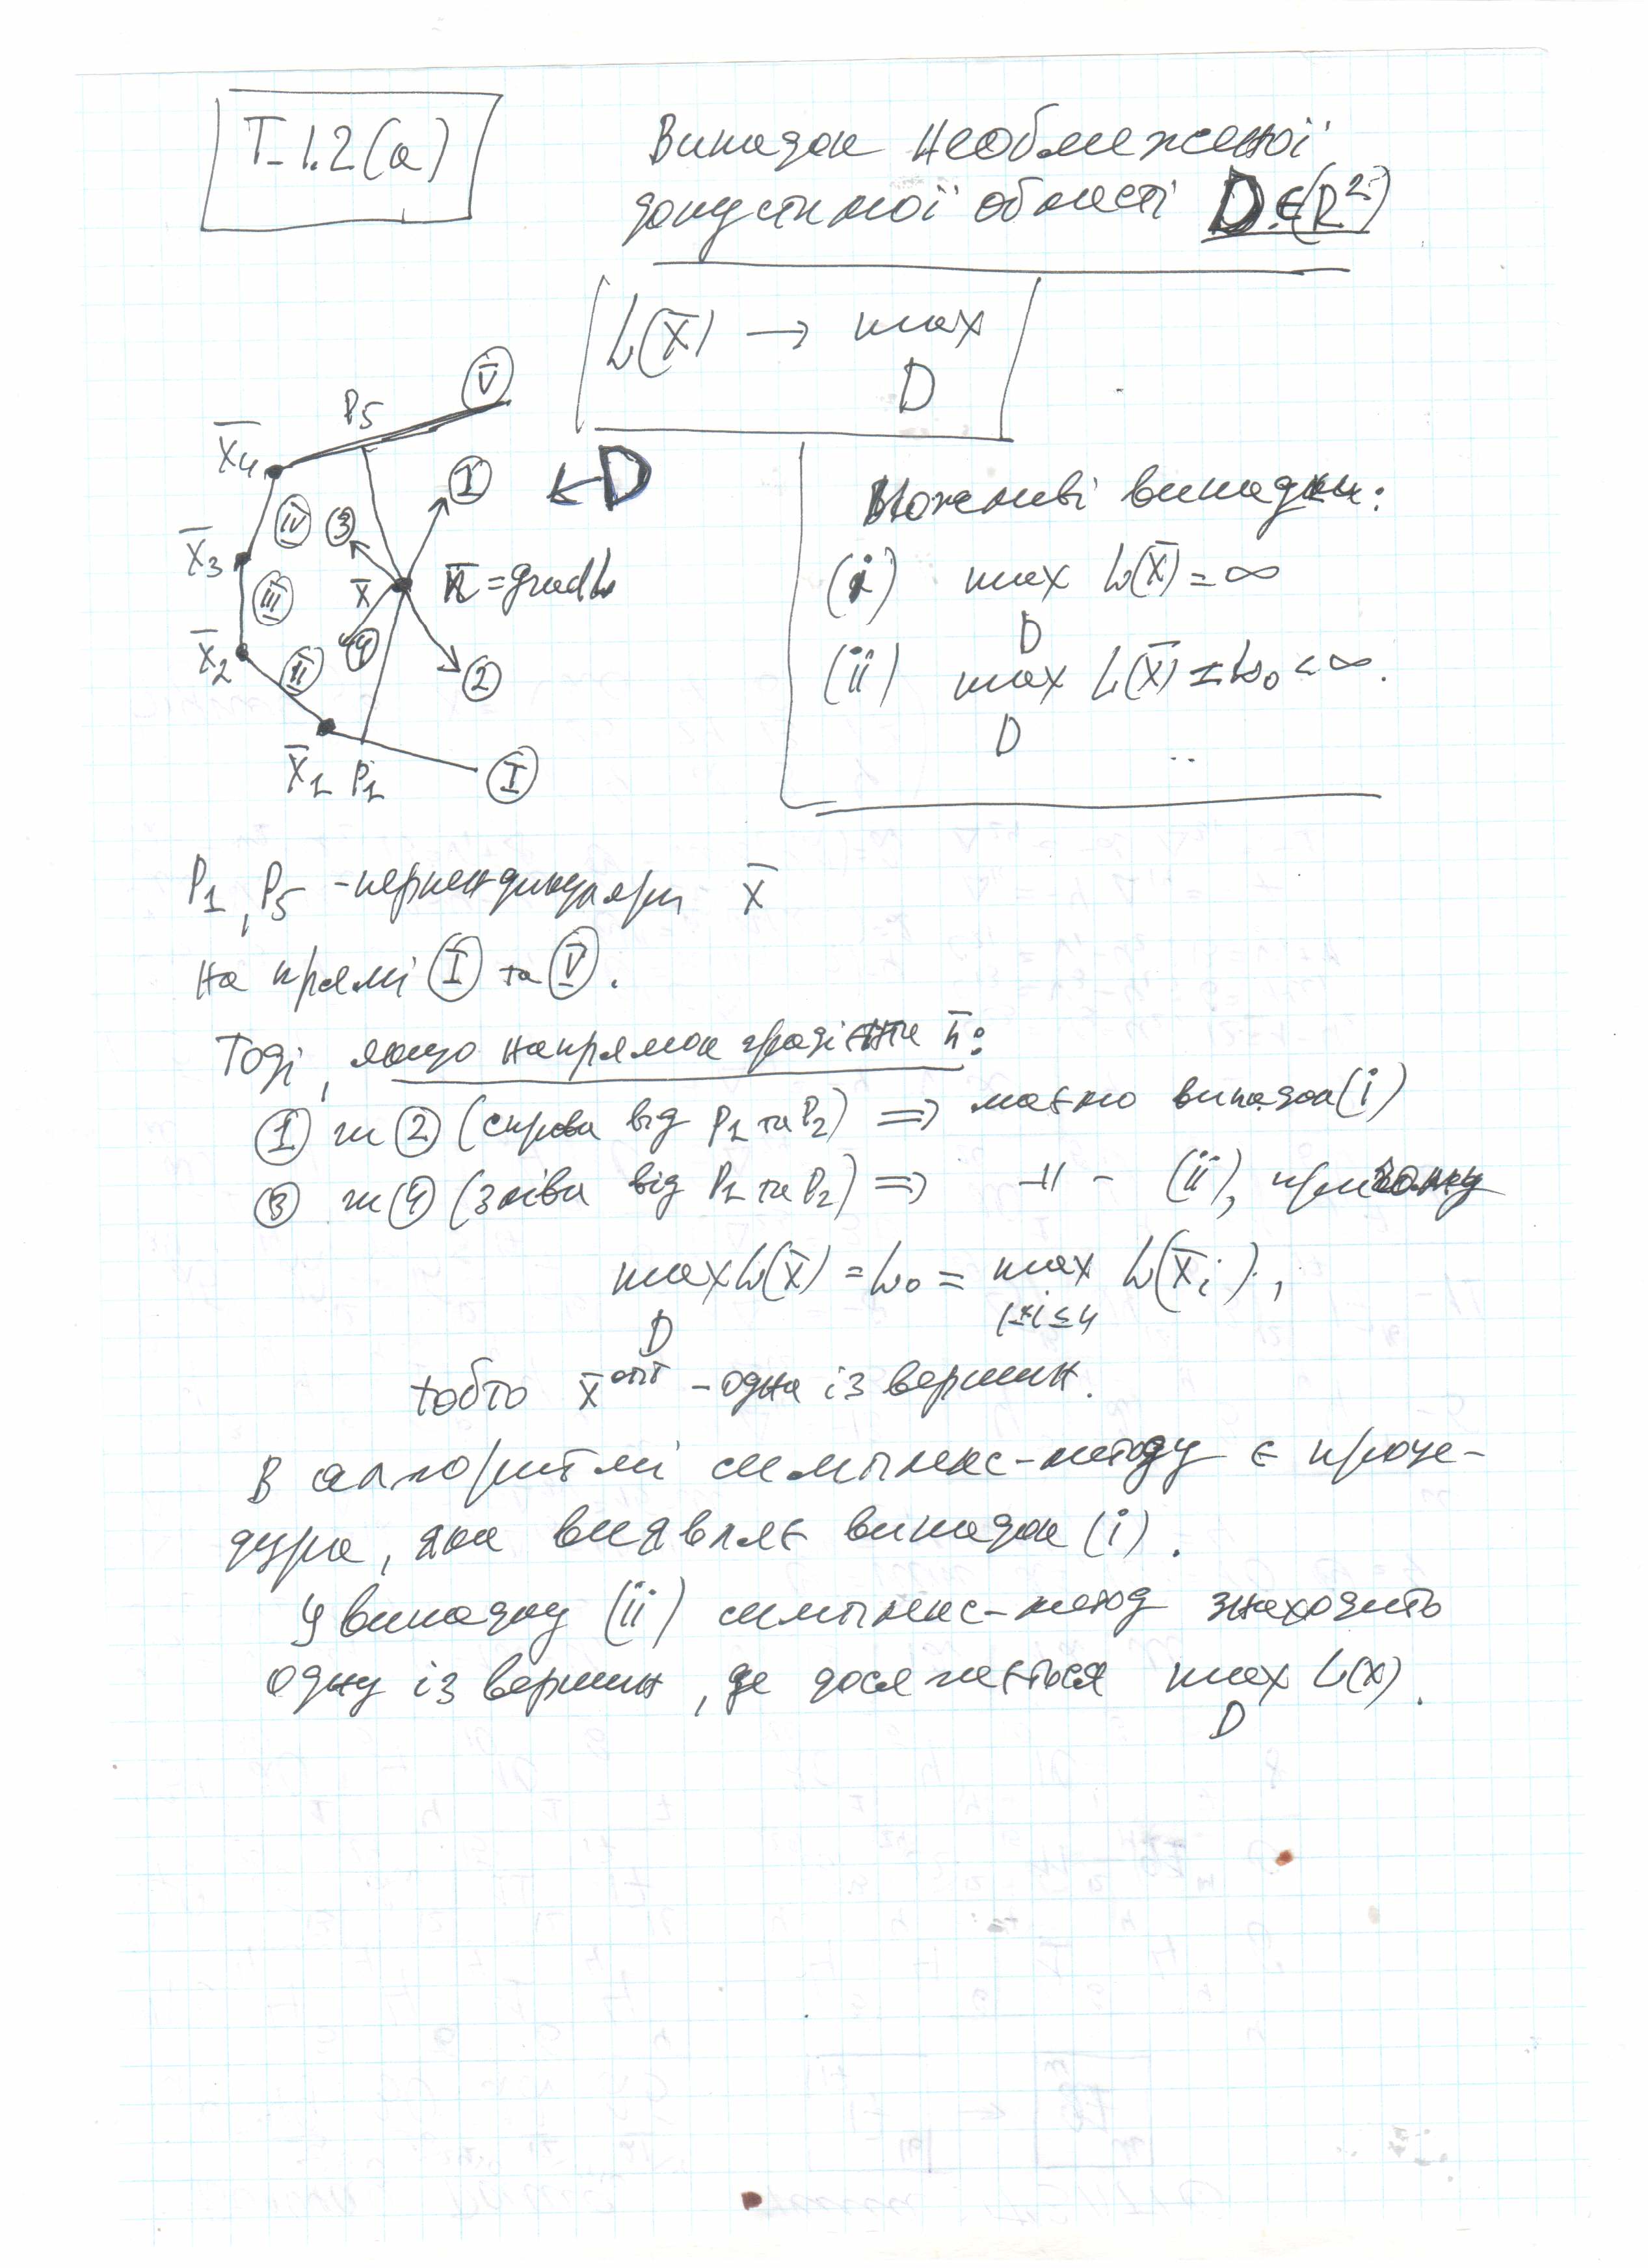 T-1.2(а)
Випадок необмеженої
допустимої області D∈(R²)
L(x̄) → max
D
P5 Ⓥ
x̄4 Ⓘ ← D
Ⓘⓥ ③
x̄3
Ⓘⓘⓘ x̄ n̄ = grad L
x̄2 Ⓘⓘ ④ ②
x̄1 P1 Ⓘ
Можливі випадки:
(i) max L(x̄) = ∞
D
(ii) max L(x̄) = L₀ < ∞.
D
P1, P5 - перпендикуляри x̄
на прямі Ⓘ та Ⓥ.
Тоді, якщо напрямок градієнта n̄:
① чи ② (справа від P1 та P2) ⇒ маємо випадок (i)
③ чи ④ (зліва від P1 та P2) ⇒ -॥- (ii), причому
max L(x̄) = L₀ = max L(x̄i),
D 1≤i≤4
тобто x̄ᵒⁿᵀ - одна із вершин.
В алгоритмі симплекс-методу є проце-
дура, яка виявляє випадок (i).
У випадку (ii) симплекс-метод знаходить
одну із вершин, де досягається max L(x).
D